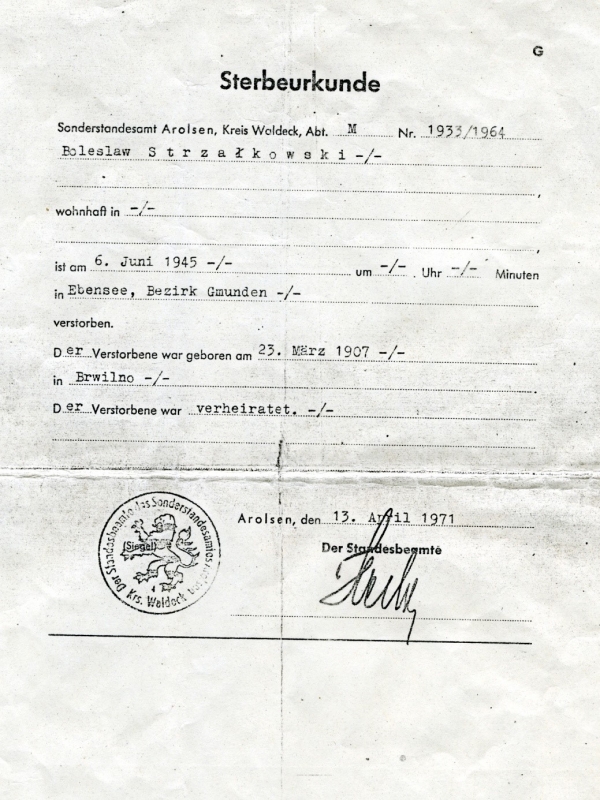 G
Sterbeurkunde
Sonderstandesamt Arolsen, Kreis Waldeck, Abt. M Nr. 1933/1964
Boleslaw Strzałkowski -/-
wohnhaft in -/-
ist am 6. Juni 1945 -/- um -/- Uhr -/- Minuten
in Ebensee, Bezirk Gmunden -/-
verstorben.
Der Verstorbene war geboren am 23. März 1907 -/-
in Brwilno -/-
Der Verstorbene war verheiratet. -/-
Arolsen, den 13. April 1971
Der Standesbeamte
(Siegel)
Der Standesbeamte des Sonderstandesamtes Arolsen
Krs. Waldeck
4